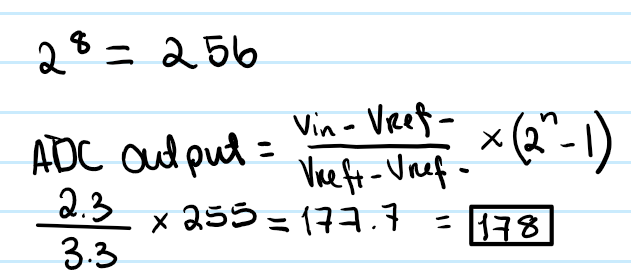 2^8 = 256
ADC output = (Vin - Vref-)/(Vref+ - Vref-) × (2^n - 1)
2.3/3.3 × 255 = 177.7 = 178